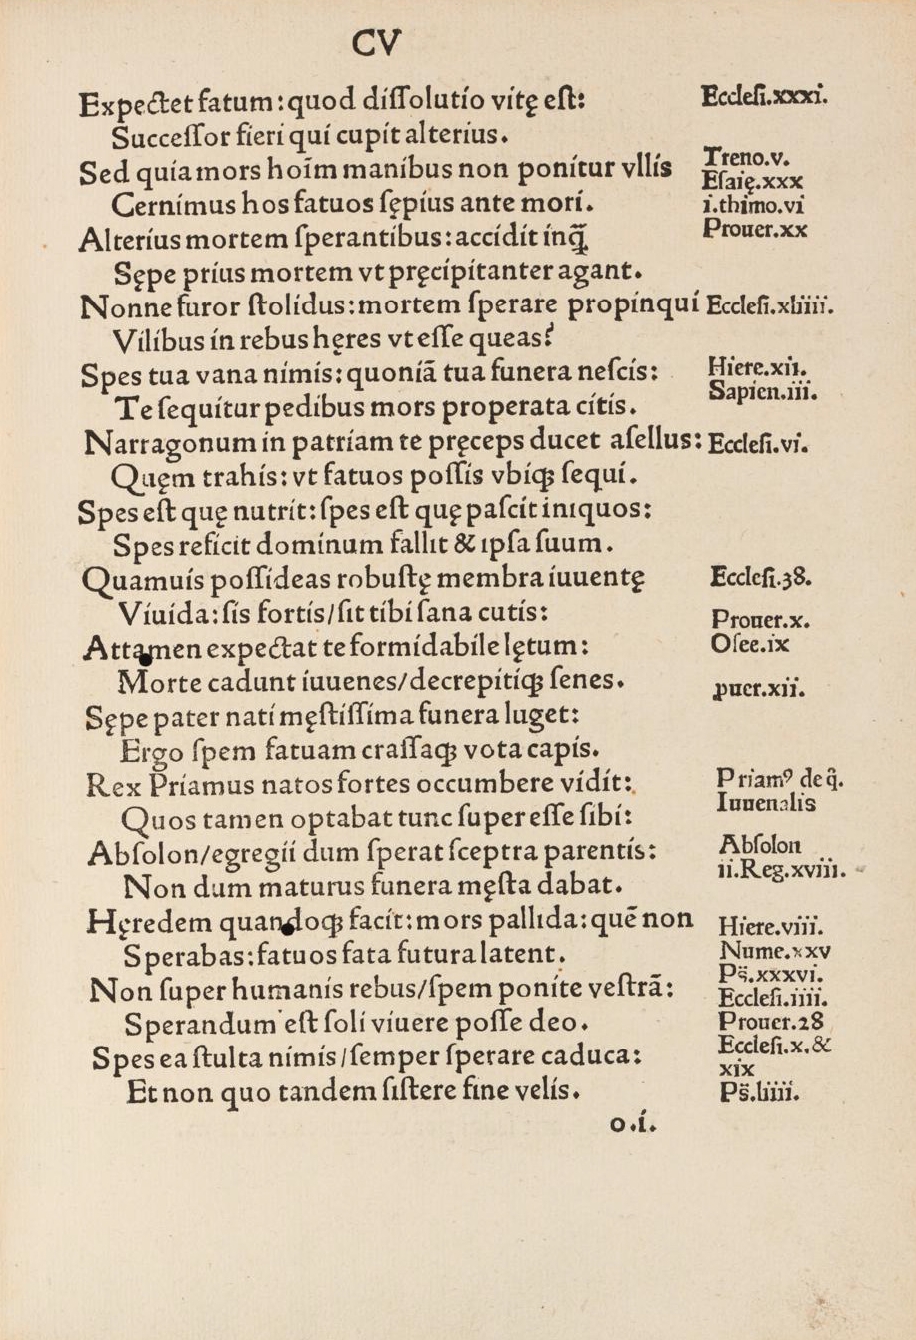 CV
Expectet fatum: quod diſſolutio vitę eſt:
Eccleſi.xxxi.
Succeſſor fieri qui cupit alterius.
Sed quia mors hoīm manibus non ponitur vllis
Treno.v.
Eſaię.xxx
Cernimus hos fatuos ſępius ante mori.
i.thimo.vi
Alterius mortem ſperantibus: accidit inꝙ̃
Prouer.xx
Sępe prius mortem vt pręcipitanter agant.
Nonne furor ſtolidus: mortem ſperare propinqui
Eccleſi.xliiii.
Vilibus in rebus hęres vt eſſe queas?
Spes tua vana nimis: quoniā tua funera neſcis:
Hiere.xii.
Sapien.iii.
Te ſequitur pedibus mors properata citis.
Narragonum in patriam te pręceps ducet aſellus:
Eccleſi.vi.
Quęm trahis: vt fatuos poſſis vbiqꝫ ſequi.
Spes eſt quę nutrit: ſpes eſt quę paſcit iniquos:
Spes reficit dominum fallit & ipſa ſuum.
Quamuis poſſideas robuſtę membra iuuentę
Eccleſi.38.
Viuida: ſis fortis/ ſit tibi ſana cutis:
Prouer.x.
Attamen expectat te formidabile lętum:
Oſee.ix
Morte cadunt iuuenes/ decrepitiqꝫ ſenes.
ꝓuer.xii.
Sępe pater nati męſtiſſima funera luget:
Ergo ſpem fatuam craſſaqꝫ vota capis.
Rex Priamus natos fortes occumbere vidit:
Priamꝰ de q̄.
Iuuenalis
Quos tamen optabat tunc ſuper eſſe ſibi:
Abſolon/ egregii dum ſperat ſceptra parentis:
Abſolon
ii.Reg.xviii.
Non dum maturus funera męſta dabat.
Hęredem quandoqꝫ facit: mors pallida: quē non
Hiere.viii.
Sperabas: fatuos fata futura latent.
Nume.xxv
Ps̄.xxxvi.
Non ſuper humanis rebus/ ſpem ponite veſtrā:
Eccleſi.iiii.
Sperandum eſt ſoli viuere poſſe deo.
Prouer.28
Spes ea ſtulta nimis/ ſemper ſperare caduca:
Eccleſi.x.&
xix
Et non quo tandem ſiſtere fine velis.
Ps̄.liiii.
o.i.